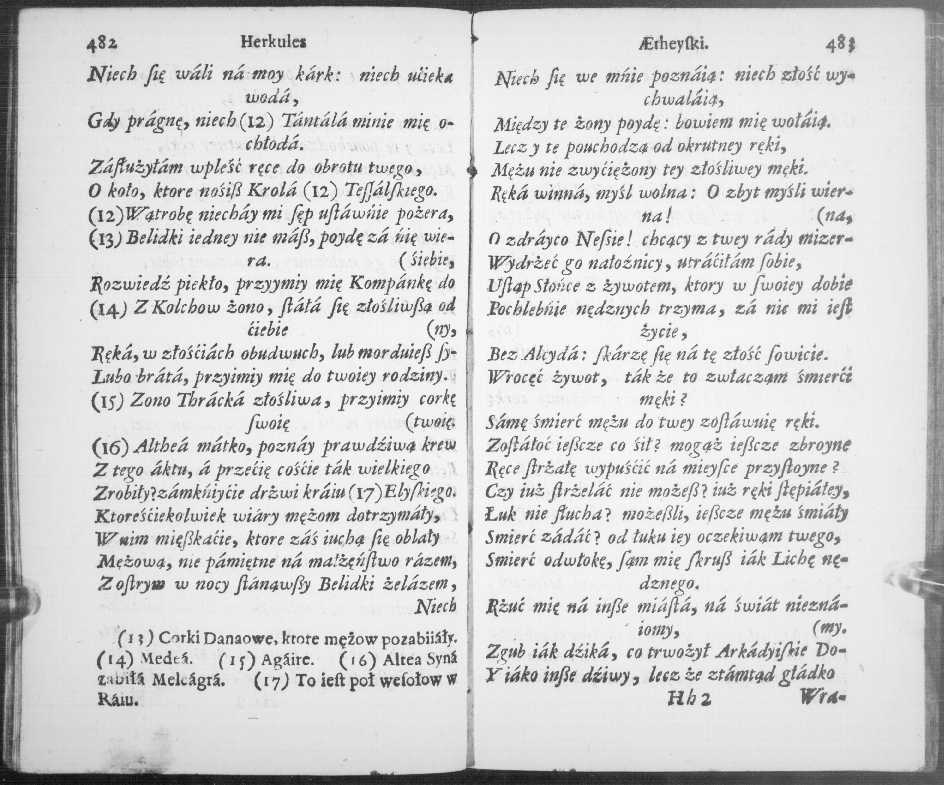 482 Herkules
Niech ſię wáli ná moy kárk: niech ućieka
wodá,
Gdy prágnę, niech (12) Tántálá minie mię o-
chłodá.
Záſłużyłám wpleść ręce do obrotu twego,
O koło, ktore nośiß Krolá (12) Teſſálſkiego.
(12) Wątrobę niecháy mi ſęp uſtáwńie pożera,
(13) Belidki iedney nie máß, poydę zá ńię wie-
ra. (śiebie,
Rozwiedź piekło, przyymiy mię Kompánkę do
(14) Z Kolchow żono, ſtáłá ſię złośliwßą od
ćiebie (ny,
Ręká, w złośćiách obudwuch, lub morduieß ſy-
Lubo brátá, przyimiy mię do twoiey rodziny.
(15) Zono Thrácká złośliwa, przyimiy corkę
ſwoię (twoię.
(16) Altheá mátko, poznáy prawdźiwą krew
Z tego áktu, á przećię cośćie ták wielkiego
Zrobiły? zámkńiyćie drzwi kráiu (17) Elyſkiego.
Ktoreśćiekolwiek wiáry mężom dotrzymáły,
W nim mięßkaćie, ktore záś iuchą ſię oblały
Mężową, nie pámiętne ná małżęńſtwo rázem,
Z oſtrym w nocy ſtánąwſßy Belidki żelázem,
Niech
(13) Corki Danaowe, ktore mężow pozabiiáły.
(14) Medeá. (15) Agáire. (16) Altea Syná
zabiłá Meleágrá. (17) To ieſt poł weſołow w
Ráiu.
Ætheyſki. 483
Niech ſię we mńie poznáią: niech złość wy-
chwaláią,
Między te żony poydę: bowiem mię wołáią.
Lecz y te pouchodzą od okrutney ręki,
Mężu nie zwyćiężony tey złośliwey męki.
Ręká winná, myśl wolna: O zbyt myśli wier-
na! (na,
O zdráyco Neſsie! chcący z twey rády mizer-
Wydrżeć go nałożnicy, utráćiłám ſobie,
Uſtąp Słońce z żywotem, ktory w ſwoiey dobie
Pochlebńie nędznych trzyma, zá nic mi ieſt
życie,
Bez Alcydá: ſkárzę ſię ná tę złość ſowicie.
Wrocęć żywot, ták że to zwłacząm śmierći
męki?
Sámę śmierć mężu do twey zoſtáwuię ręki.
Zoſtáłoć ieſzcze co śił? mogąż ieſzcze zbroyne
Ręce ſtrżałę wypuśćić ná mieyſce przyſtoyne?
Czy iuż ſtrżeláć nie możeß? iuż ręki ſtępiáłey,
Łuk nie ſłucha? możeßli, ieſzcze mężu śmiáły
Smierć zádáć? od łuku iey oczekiwąm twego,
Smierć odwłokę, ſąm mię ſkruß iák Lichę nę-
dznego.
Rżuć mię ná inße miáſtá, ná świát niezná-
iomy, (my.
Zgub iák dźiká, co trwożył Arkádyiſkie Do-
Y iáko inße dźiwy, lecz że ztámtąd głádko
Hh 2 Wra-